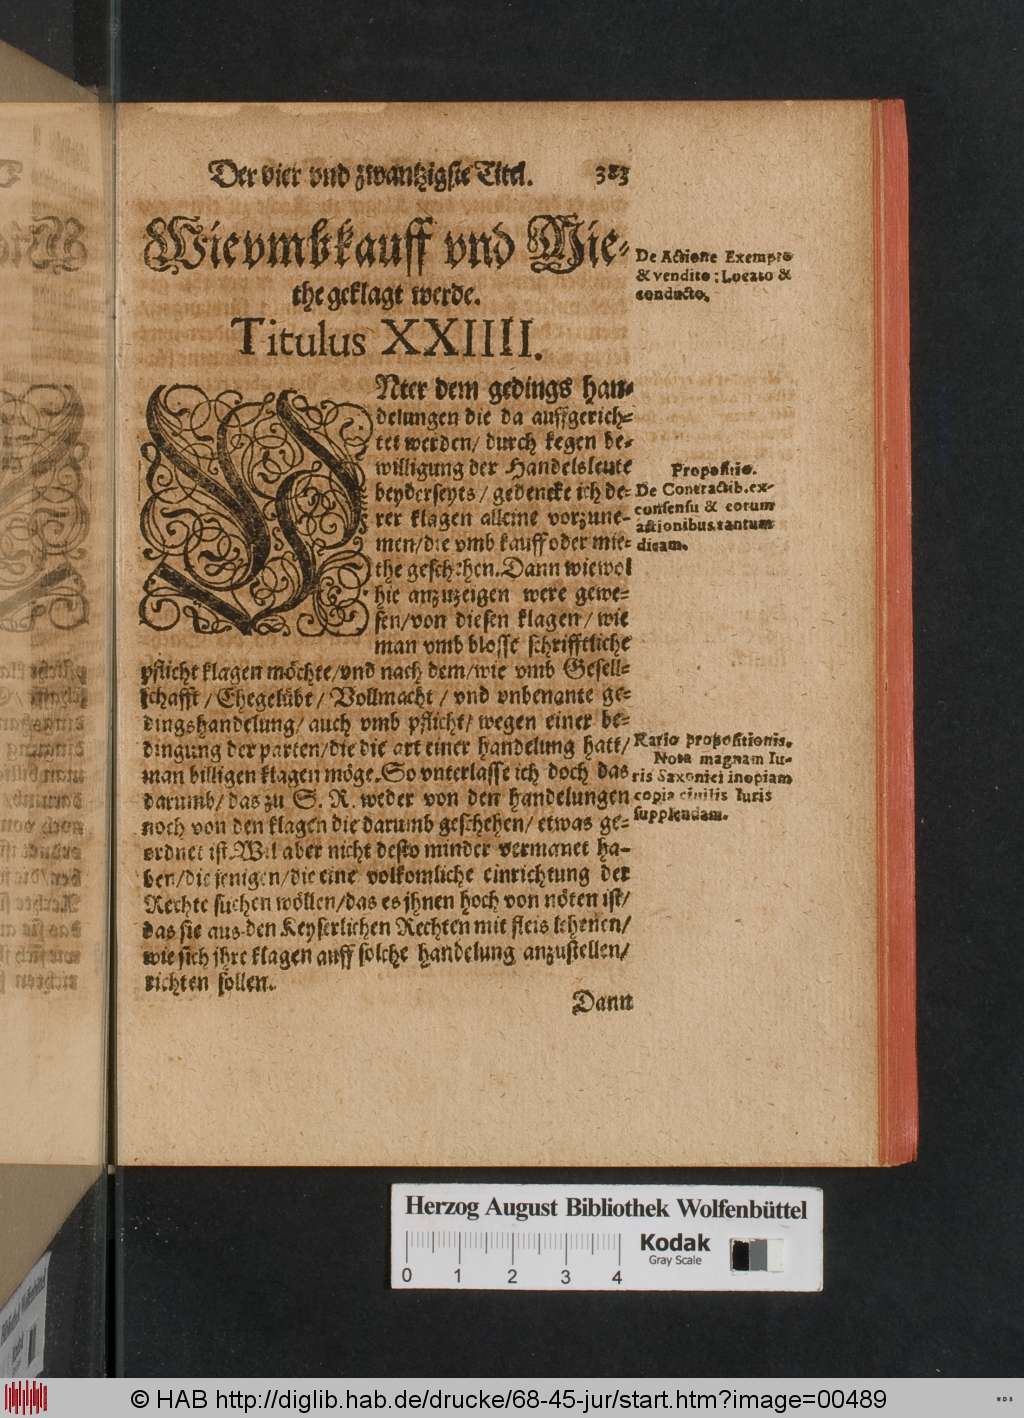 Der vier vnd zwantzigste Titel. 383
Wie vmb kauff vnd Mie-
the geklagt werde.
Titulus XXIIII.
De Actione Exempto
& vendito: Locato &
conducto.
VNter dem gedings han-
delungen die da auffgerich-
tet werden/ durch kegen be-
willigung der Handelsleute
beyderseyts/ gedencke ich de-
rer klagen alleine vorzune-
men/die vmb kauff oder mie-
the geschehen. Dann wiewol
hie anzuzeigen were gewe-
sen/von diesen klagen/ wie
man vmb blosse schrifftliche
pflicht klagen möchte/vnd nach dem/wie vmb Gesell-
schafft/ Ehegelübt/ Vollmacht/ vnd vnbenante ge-
dingshandelung/ auch vmb pflicht/ wegen einer be-
dingung der parten/die die art einer handelung hatt/
man billigen klagen möge. So vnterlasse ich doch das
darumb/ das zu S. R. weder von den handelungen
noch von den klagen die darumb geschehen/ etwas ge-
ordnet ist. Wil aber nicht desto minder vermanet ha-
ben/die jenigen/die eine volkomliche einrichtung der
Rechte suchen wöllen/das es jhnen hoch von nöten ist/
das sie aus den Keyserlichen Rechten mit fleis lehenen/
wie sich jhre klagen auff solche handelung anzustellen/
richten sollen.
Dann
Propositio.
De Contractib. ex-
consensu & eorum
actionibus tantum
dicam.
Ratio propositionis.
Nota magnam Iu-
ris Saxonici inopiam
copia civilis Iuris
supplendam.
Herzog August Bibliothek Wolfenbüttel
0 1 2 3 4
Kodak
Gray Scale
© HAB http://diglib.hab.de/drucke/68-45-jur/start.htm?image=00489